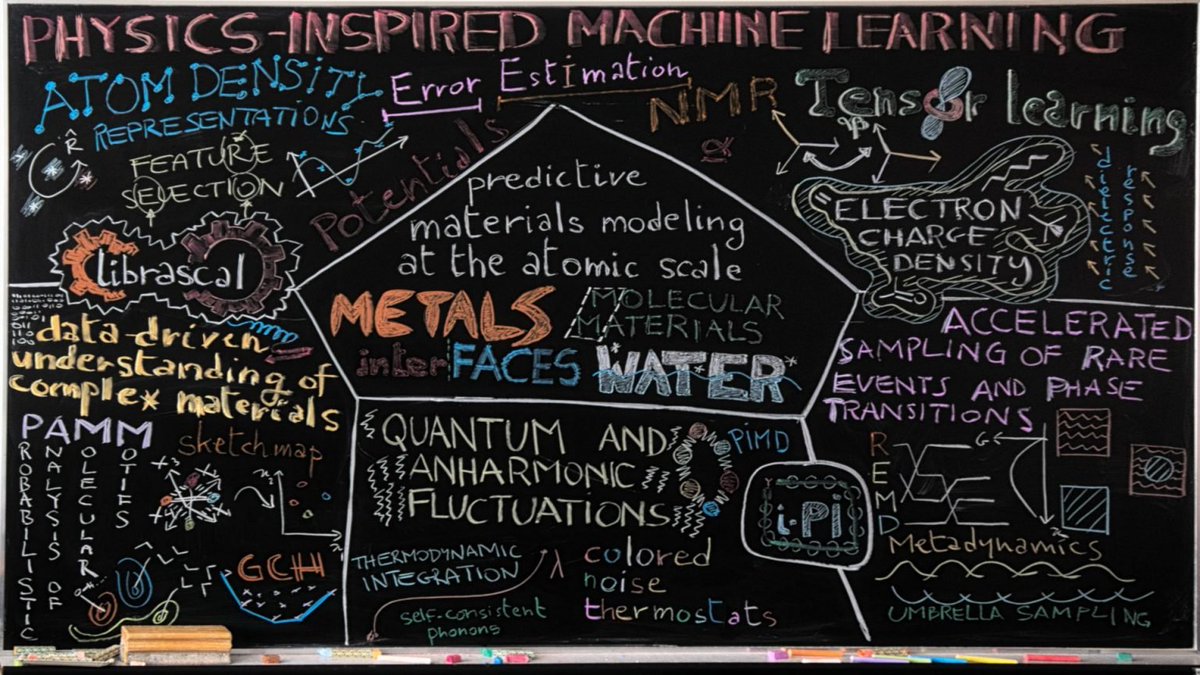 PHYSICS-INSPIRED MACHINE LEARNING
ATOM DENSITY
REPRESENTATIONS
Error Estimation
NMR
Tensor learning
FEATURE
SELECTION
Potentials
librascal
predictive
materials modeling
at the atomic scale
METALS
MOLECULAR
MATERIALS
interFACES
WATER
ELECTRON
CHARGE
DENSITY
dielectric
response
data-driven
understanding of
complex materials
PAMM
PROBABILISTIC
ANALYSIS OF
MOLECULAR
MOTIFS
sketchmap
GCH
QUANTUM AND
ANHARMONIC
FLUCTUATIONS
PIMD
i-Pi
THERMODYNAMIC
INTEGRATION
λ
self-consistent
phonons
colored
noise
thermostats
ACCELERATED
SAMPLING OF RARE
EVENTS AND PHASE
TRANSITIONS
REMD
G
Metadynamics
UMBRELLA SAMPLING